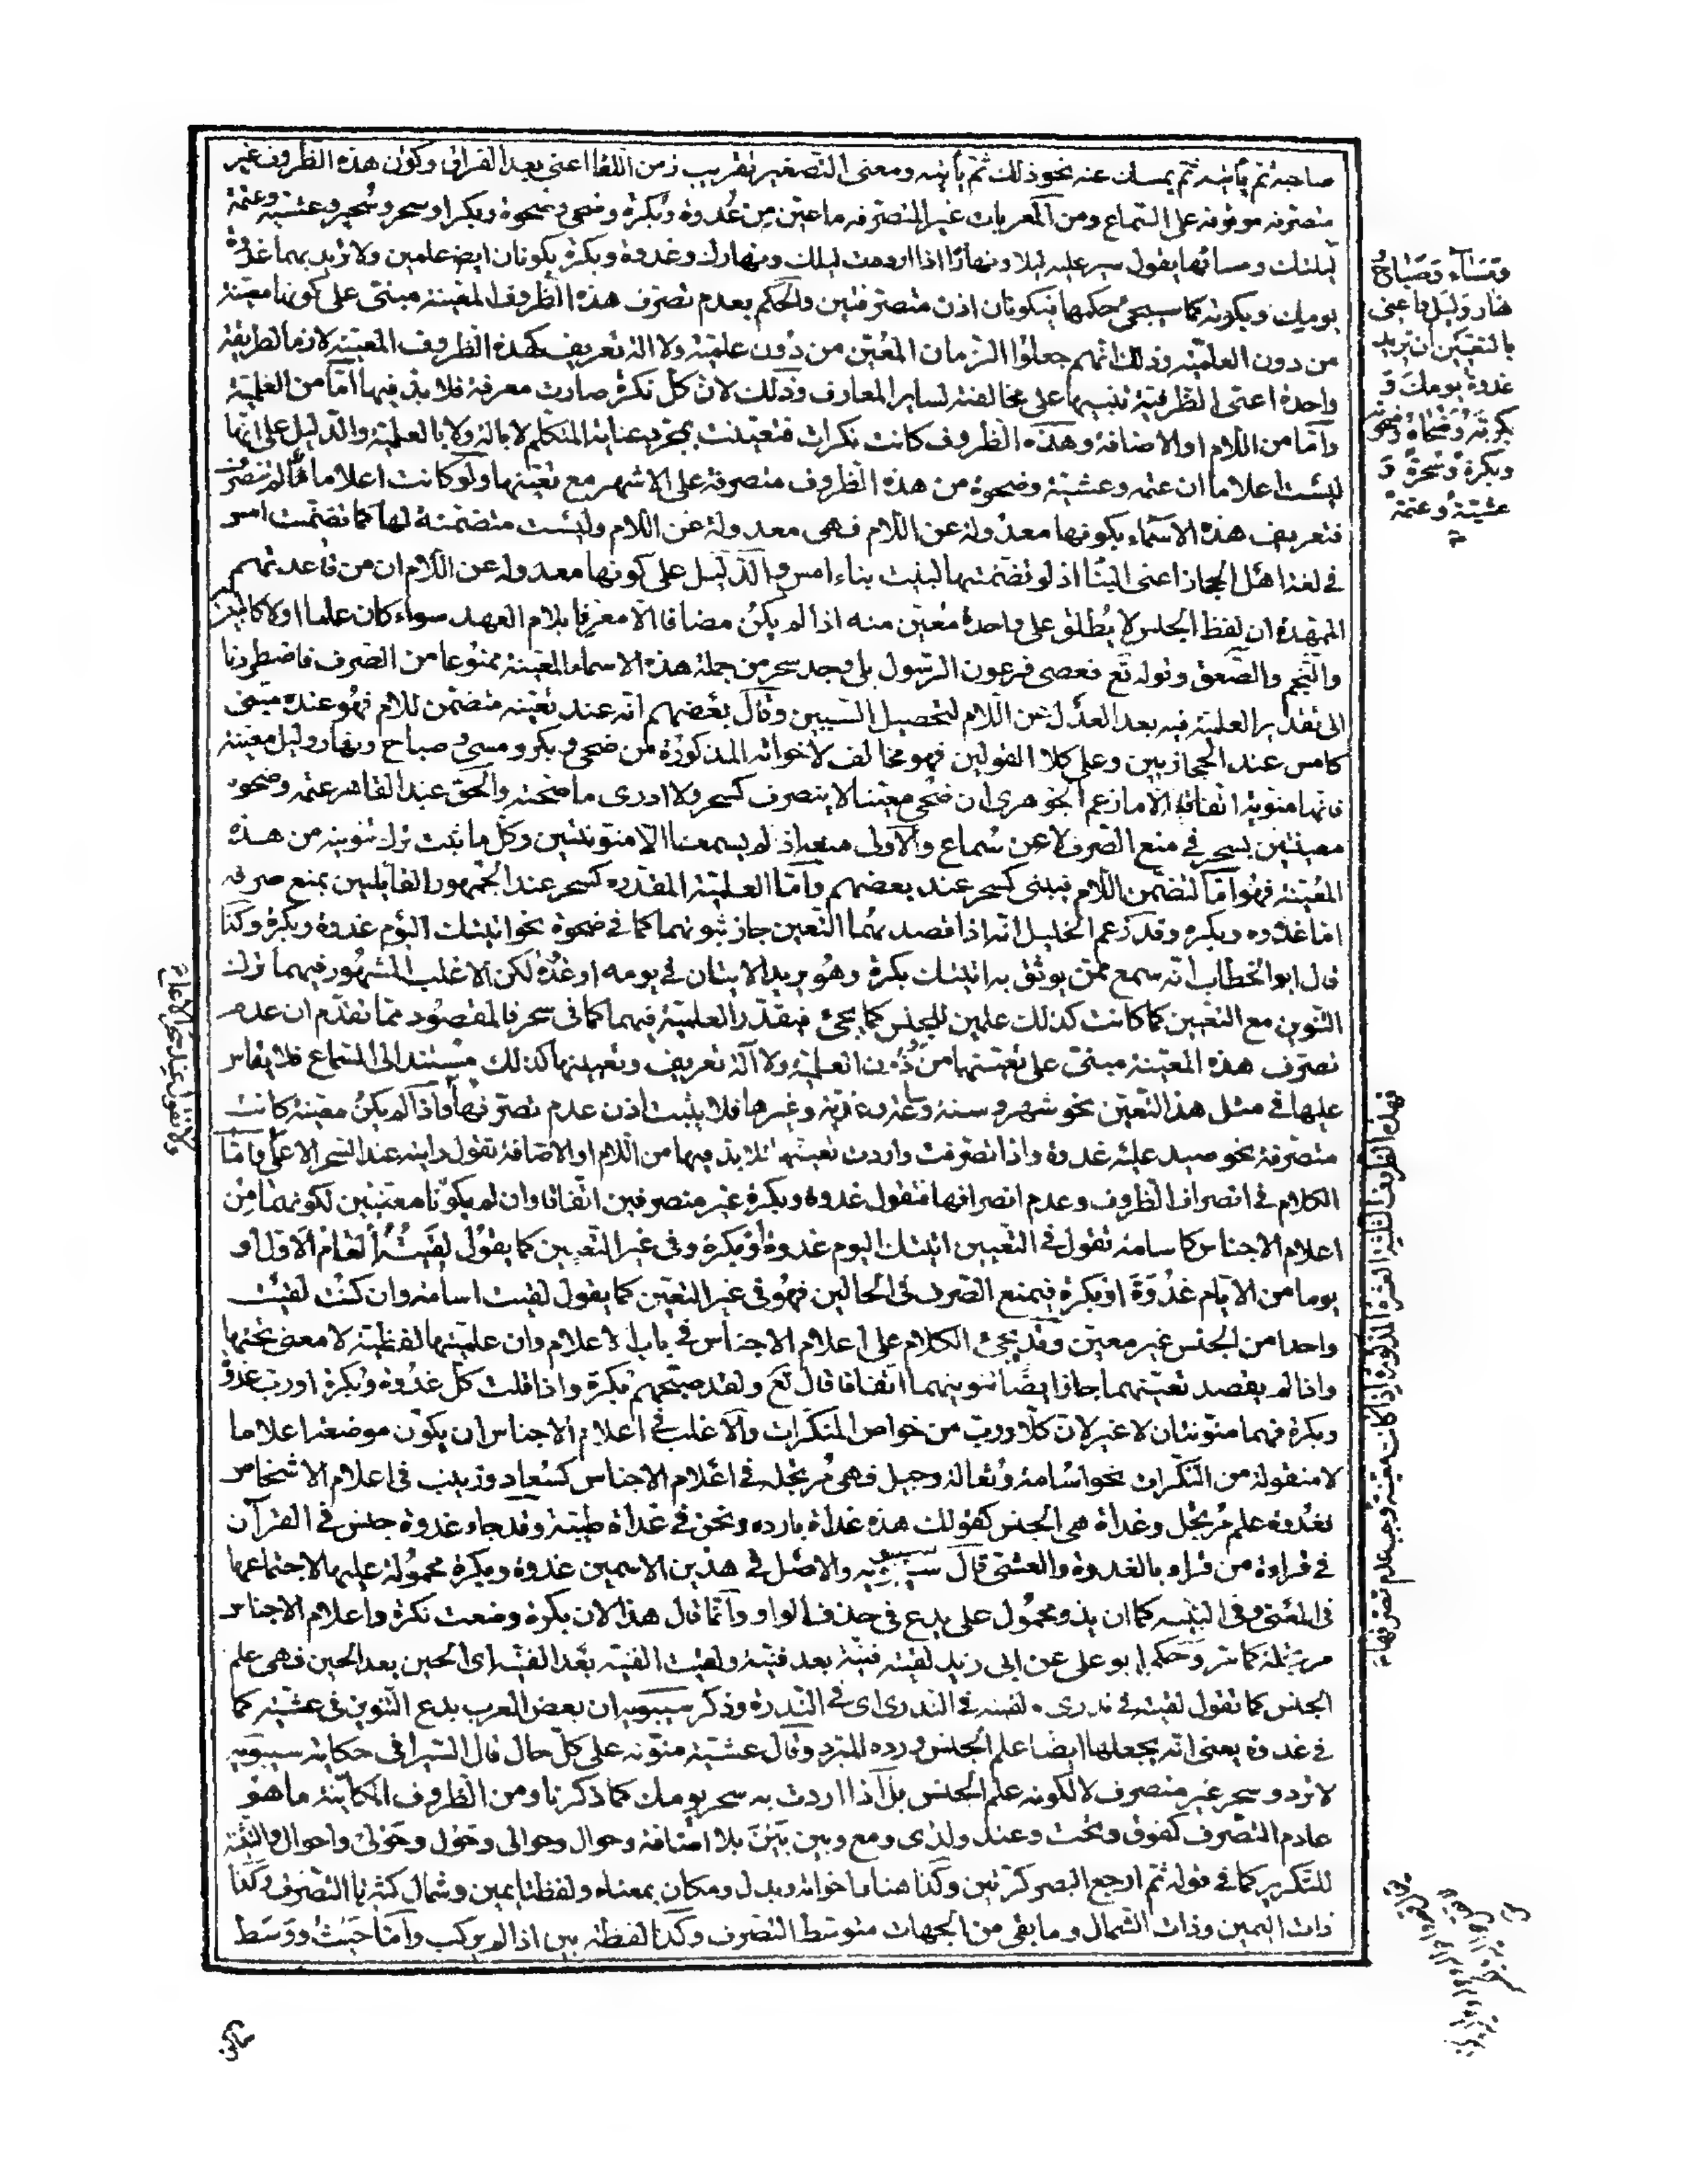 صاحبه ثم يأتيه ثم يمسك عنه نحو ذلك ثم يأتيه ومعنى التصغير تقريب زمن اللقا اعنى بعد الفراق وكون هذه الظروف غير
متصرفه موقوفه على السماع ومن المعربات غير المتصرفه ما عين من غدوة وبكرة وضحى وضحوة وبكرا وسحر وسحير وعشيه وعتمة
ليلتك ومسائها يقول سير عليه ليلا ونهارا اذا اردت ليلك ونهارك وغدوة وبكرة يكونان ايض علمين ولا تريد بهما غدوة
يومك وبكرته كما سيجئ حكمها فيكونان اذن متصرفتين والحكم بعدم تصرف هذه الظروف المعينة مبنى على كونها معينة
من دون العلمية وذلك انهم جعلوا الزمان المعين من دون علمية ولا الة تعريف كهذه الظروف المعينه لازما لطريقة
واحدة اعنى الظرفية تنبيها على مخالفته لساير المعارف وذلك لان كل نكرة صارت معرفة فلا بد فيها اما من العلمية
واما من اللام او الاضافة وهذه الظروف كانت نكرات فتعينت بمجرد عناية المتكلم لا بالة ولا بالعلمية والدليل على انها
ليست اعلاما ان عتمه وعشية وضحوة من هذه الظروف منصرفة على الاشهر مع تعينها ولو كانت اعلاما لم تنصرف
فتعريف هذه الاسماء بكونها معدولة عن اللام فهى معدولة عن اللام وليست متضمنة لها كما تضمنت امس
فى لغة اهل الحجاز اعنى البنا اذ لو تضمنتها لبنيت بناء امس والدليل على كونها معدوله عن اللام ان من قاعدتهم
الممهدة ان لفظ الجنس لا يطلق على واحدة معين منه اذا لم يكن مضافا الا معرفا بلام العهد سواء كان علما اولا كالبيت
والنجم والصعق وقوله تع فعصى فرعون الرسول بلى وجد سحر من جملة هذه الاسماء المعينة ممنوعا من الصرف فاضطررنا
الى تقدير العلمية فيه بعد العدل عن اللام لتحصيل السببين وقال بعضهم انه عند تعينه متضمن للام فهو عنده مبنى
كامس عند الحجازيين وعلى كلا القولين فهو مخالف لاخواته المذكورة من ضحى وبكر ومسى وصباح ونهار وليل معينة
فانها منونة اتفاقا الا ما زعم الجوهرى ان ضحى معينا لا ينصرف كسحر ولا ادرى ما صحته والحق عبد القاهر عتمه وضحوه
معينتين بسحر فى منع الصرف لا عن سماع والاولى منعه اذ لم يسمعنا الا منونتين وكل ما ثبت ترك تنوينه من هذه
المعينة فهو اما لتضمن اللام فيبنى كسحر عند بعضهم واما العلمية المقدره كسحر عند الجمهور القائلين بمنع صرفه
اما غدوه وبكره وقد زعم الخليل انه اذا قصد بهما التعين جاز تنوينهما كما فى ضحوة نحو اتيتك اليوم غدوة وبكرة وكذا
قال ابو الخطاب انه سمع ممن يوثق به اتيتك بكرة وهو يريد الاتيان فى يومه او غده لكن الاغلب المشهور فيهما ترك
التنوين مع التعيين كما كانت كذلك علمين للجنس كما يجئ فيقدر العلمية فيهما كما فى سحر فالمقصود مما تقدم ان عدم
تصرف هذه المعينة مبنى على تعينها من دون العلمية ولا آلة تعريف وتعيينها كذلك مستند الى السماع فلا يقاس
عليها فى مثل هذا التعين نحو شهر وسنة وساعة وغيرها فلا يثبت اذن عدم تصرفها واذا لم يكن معينة كانت
متصرفة نحو صيد عليه غدوة واذا تصرفت واردت تعينها فلا بد فيها من اللام او الاضافة تقول رايته عند السحر الاعلى واما
الكلام فى انصراف الظروف وعدم انصرافها فنقول غدوة وبكرة غير منصرفين اتفاقا وان لم يكونا معينين لكونهما من
اعلام الاجناس كاسامة تقول فى التعيين اتيتك اليوم غدوة او بكرة وفى غير التعيين كما يقول لقيته العام الاول او
يوما من الايام غدوة او بكرة فيمنع الصرف فى الحالين فهو فى غير التعين كما يقول لقيت اسامة وان كنت لقيت
واحدا من الجنس غير معين وقد يجئ الكلام على اعلام الاجناس فى باب الاعلام وان علميتها لفظية لا معنى تحتها
واذا لم يقصد تعينهما جاز ايضا تنوينهما اتفاقا قال تع ولقد صبحهم بكرة واذا قلت كل غدوة وبكرة او رب غدوة
وبكرة فهما منونتان لا غير لان كلا ورب من خواص المنكرات والاغلب فى اعلام الاجناس ان يكون موضعها اعلاما
لا منقولة من النكرات نحو اسامة وثعالة وجيل فهى مرتجلة فى اعلام الاجناس كسعاد وزينب فى اعلام الاشخاص
فغدوة علم مرتجل وغداة هى الجنس كقولك هذه غداة بارده ونحن فى غداة طيبة وقد جاء غدوة جنس فى القرآن
فى قراءة من قراء بالغدوة والعشى قال سيبويه والاصل فى هذين الاسمين غدوة وبكرة محمولة عليها لاجتماعهما
فى المعنى وفى البنيه كما ان يذر محمول على يدع فى حذف الواو وانما قال هذا لان بكرة وضعت نكرة واعلام الاجناس
مرتجلة كما مر وحكى ابو على عن ابى زيد لقيته فينة بعد فينة ولقيت الفينة بعد الفينه اى الحين بعد الحين فهى علم
الجنس كما تقول لقيته فى ندرى ولقيته فى الندرى اى فى الندرة وذكر سيبويه ان بعض العرب يدع التنوين فى عشيه كما
فى غدوة يعنى انه يجعلها ايضا علم الجنس ورده المبرد وقال عشية منونه على كل حال قال السيرافى حكاية سيبويه
لا ترد وسحر غير منصرف لا لكونه علم الجنس بل اذا اردت به سحر يومك كما ذكرنا ومن الظروف المكانية ما هو
عادم التصرف كفوق وتحت وعند ولدى ومع وبين بين بلا اضافة وحوال وحوالى وحول وحولى واحوال والتثنية
للتكرير كما فى قوله ثم ارجع البصر كرتين وكذا هنا واخواته وبدل ومكان بمعناه ولفظتا يمين وشمال كثيرتا التصرف وكذا
ذات اليمين وذات الشمال وما بقى من الجهات متوسط التصرف وكذا لفظة بين اذا لم يركب واما حيث ووسط
ومساء وصباح
نهار وليل واعنى
بالتعيين ان تريد
غدوة يومك و
بكرته وضحاه وضحوته
وبكرة وسحرة و
عشية وعتمة
فهذه الظروف المذكورة اذا كانت معينة وجب عدم تصرفها